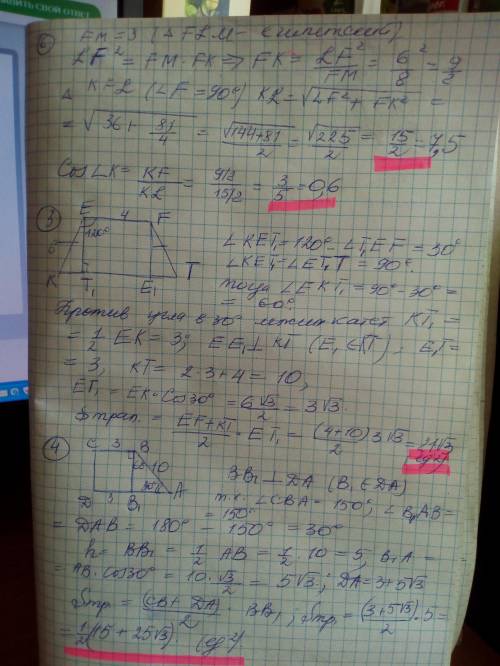 ВИТЬ СВОЙ ОТВЕТ
FM=8 (ΔFLM - египетский)
LF² = FM·FK => FK = LF²/FM = 6²/8 = 9/2
Δ KFL (∠F=90°) KL = √(LF² + FK²) =
= √(36 + 81/4) = √(144+81)/2 = √225/2 = 15/2 = 7,5
Cos∠K = KF/KL = (9/2)/(15/2) = 3/5 = 0,6
③ E 4 F
120°
6
K T₁ E₁ T
∠KET₁ = 120° - ∠T₁EF = 30°
∠KET₁ ∠ET₁T = 90°.
тогда ∠EKT₁ = 90° - 30° =
= 60°.
Против угла в 30° лежит катет KT₁ =
= 1/2 EK = 3; EE₁ ⊥ KT (E₁ ∈ KT); E₁T =
= 3, KT = 2·3+4 = 10,
ET₁ = EK·Cos30° = 6√3/2 = 3√3.
Sтрап. = (EF+KT)/2 · ET₁ = (4+10)3√3/2 = 21√3
(ед²)
④ C 3 B
10
30°
D 3 B₁ A
BB₁ ⊥ DA (B₁ ∈ DA)
т.к. ∠CBA = 150°; ∠B₁AB =
= 150°
= DAB = 180° - 150° = 30°
h = BB₁ = 1/2 AB = 1/2 · 10 = 5; B₁A =
= AB·cos30° = 10·√3/2 = 5√3; DA = 3+5√3
Sтр = (CB + DA)/2 · BB₁; Sтр = (3+5√3)/2 · 5 =
= 1/2 (15 + 25√3) (ед²)